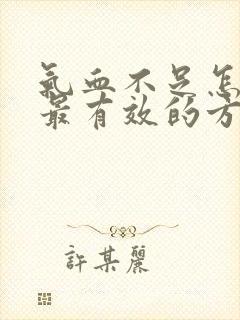 氣血不足怎
最有效的方
許某麗